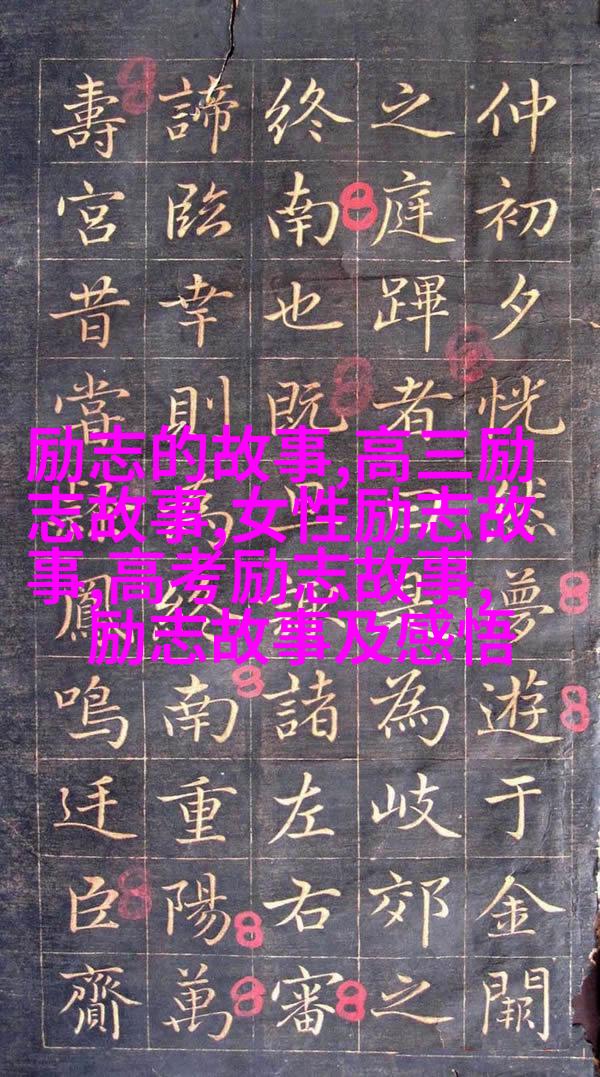 仲初夕恍然夢遊于金闕
之庭蹕者曰是為岐郊之
終南也既諸左右審
諦臨幸則萬終南重陽萬
壽宮昔當鳳鳴廷臣齎
励志的故事,高三励
志故事,女性励志故
事,高考励志故事,
励志故事及感悟